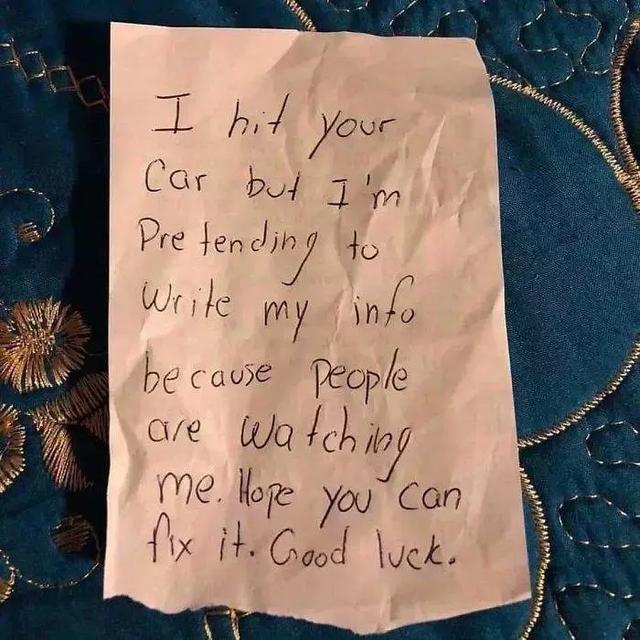 I hit your
Car but I'm
Pretending to
Write my info
because People
are watching
me. Hope you can
fix it. Good luck.